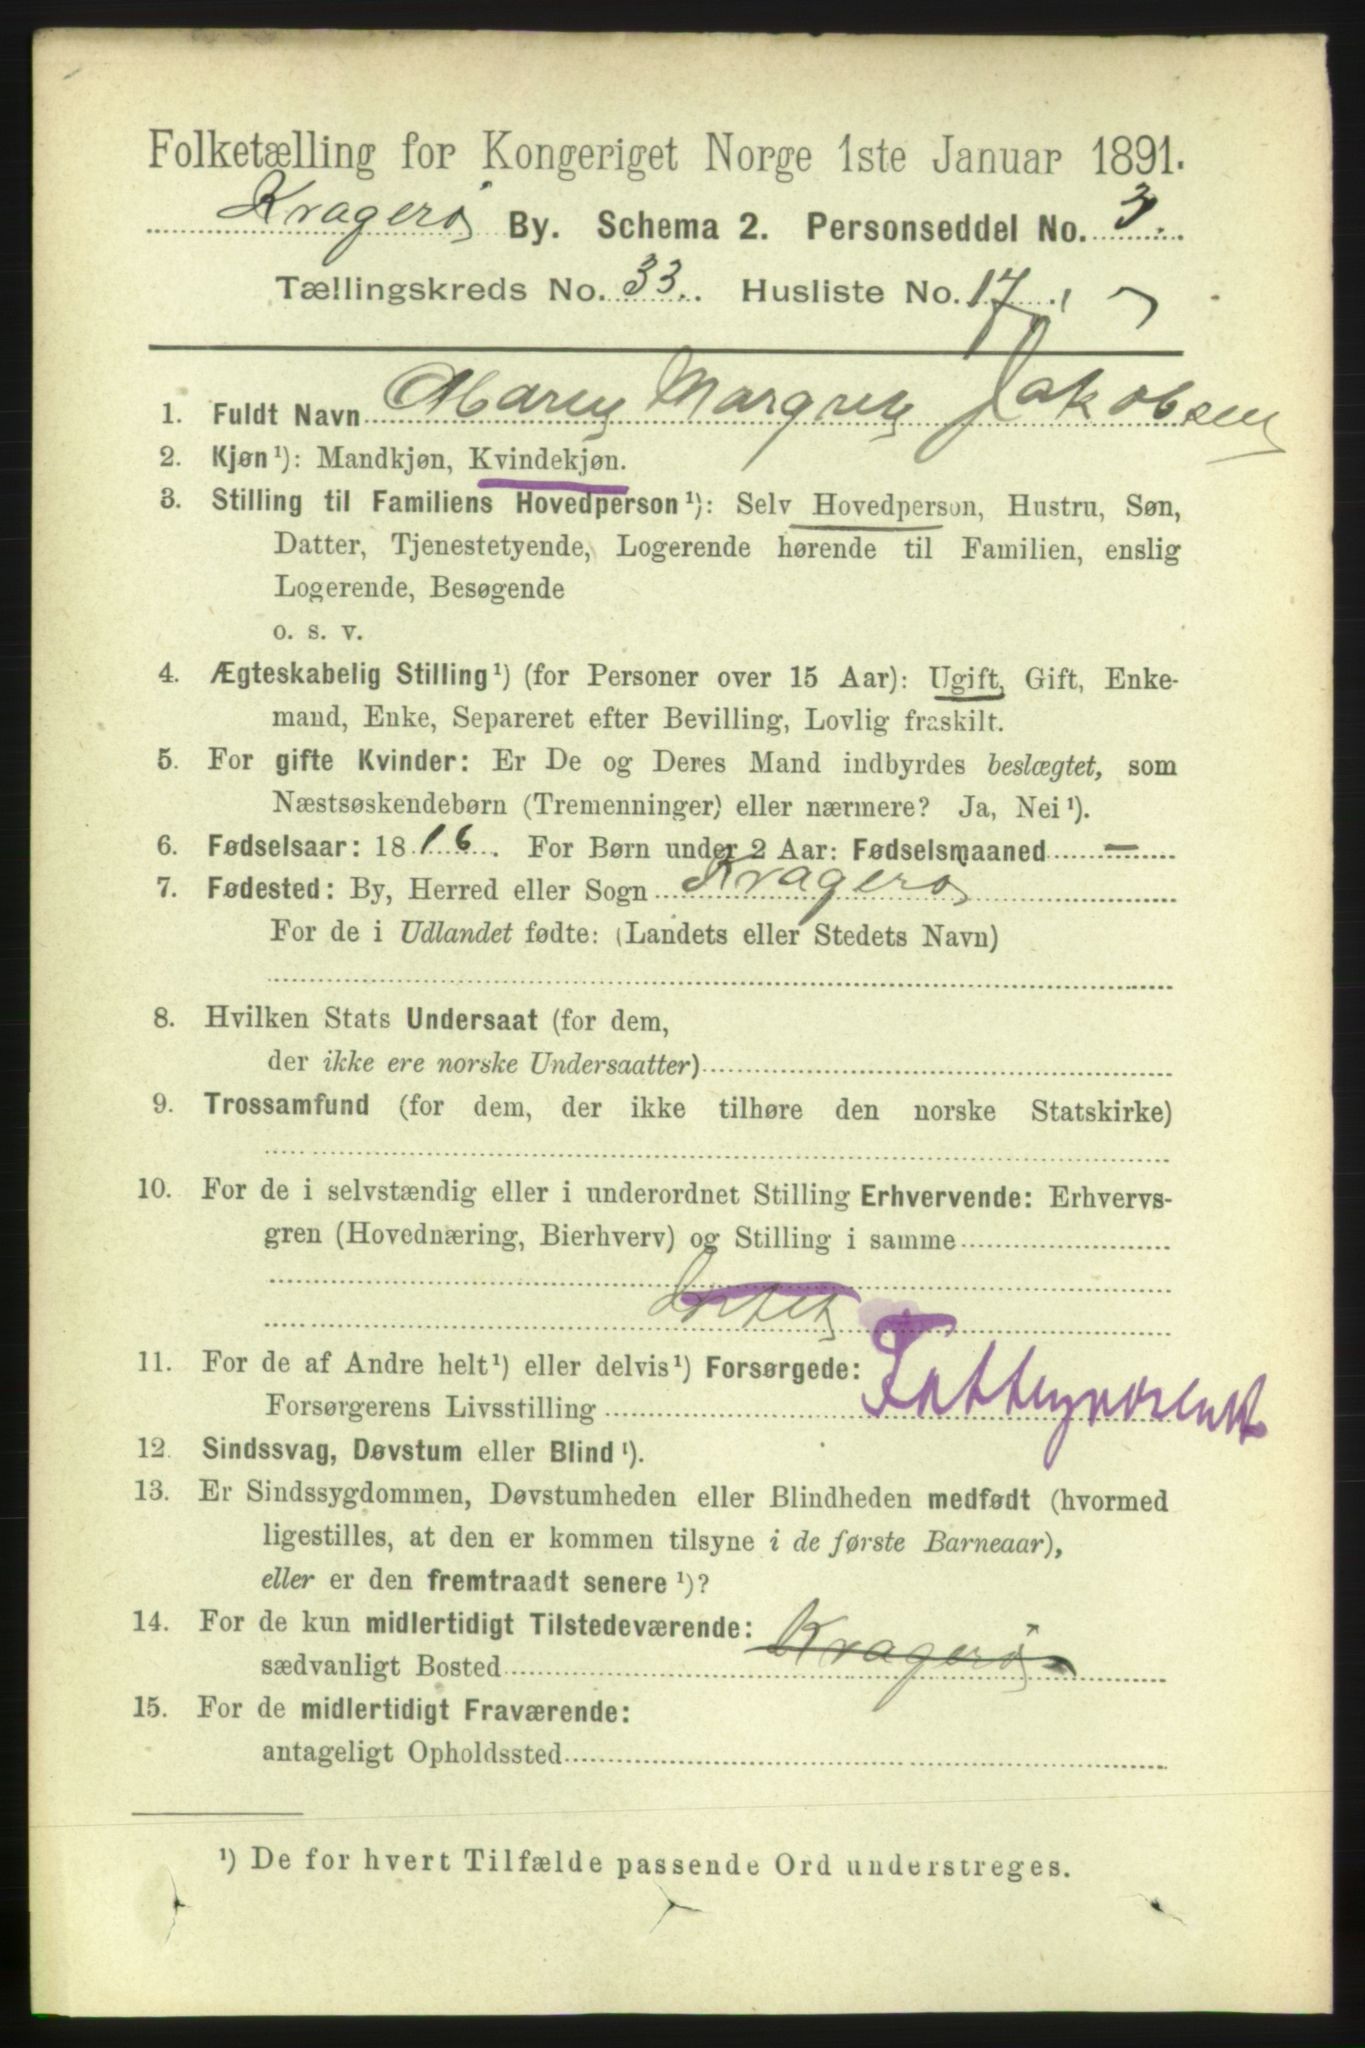 Folketælling for Kongeriget Norge 1ste Januar 1891.
Kragerø By. Schema 2. Personseddel No. 3.
Tællingskreds No. 33. Husliste No. 17
1. Fuldt Navn Maren Margrete Jakobsen
2. Kjøn¹): Mandkjøn, Kvindekjøn.
3. Stilling til Familiens Hovedperson¹): Selv Hovedperson, Hustru, Søn,
Datter, Tjenestetyende, Logerende hørende til Familien, enslig
Logerende, Besøgende
o. s. v.
4. Ægteskabelig Stilling¹) (for Personer over 15 Aar): Ugift, Gift, Enke-
mand, Enke, Separeret efter Bevilling, Lovlig fraskilt.
5. For gifte Kvinder: Er De og Deres Mand indbyrdes beslægtet, som
Næstsøskendebørn (Tremenninger) eller nærmere? Ja, Nei¹).
6. Fødselsaar: 1816. For Børn under 2 Aar: Fødselsmaaned —
7. Fødested: By, Herred eller Sogn Kragerø
For de i Udlandet fødte: (Landets eller Stedets Navn)
8. Hvilken Stats Undersaat (for dem,
der ikke ere norske Undersaatter)
9. Trossamfund (for dem, der ikke tilhøre den norske Statskirke)
10. For de i selvstændig eller i underordnet Stilling Erhvervende: Erhvervs-
gren (Hovednæring, Bierhverv) og Stilling i samme
11. For de af Andre helt¹) eller delvis¹) Forsørgede:
Forsørgerens Livsstilling Fattigvæsenet
12. Sindssvag, Døvstum eller Blind¹).
13. Er Sindssygdommen, Døvstumheden eller Blindheden medfødt (hvormed
ligestilles, at den er kommen tilsyne i de første Barneaar),
eller er den fremtraadt senere¹)?
14. For de kun midlertidigt Tilstedeværende:
sædvanligt Bosted Kragerø
15. For de midlertidigt Fraværende:
antageligt Opholdssted
¹) De for hvert Tilfælde passende Ord understreges.